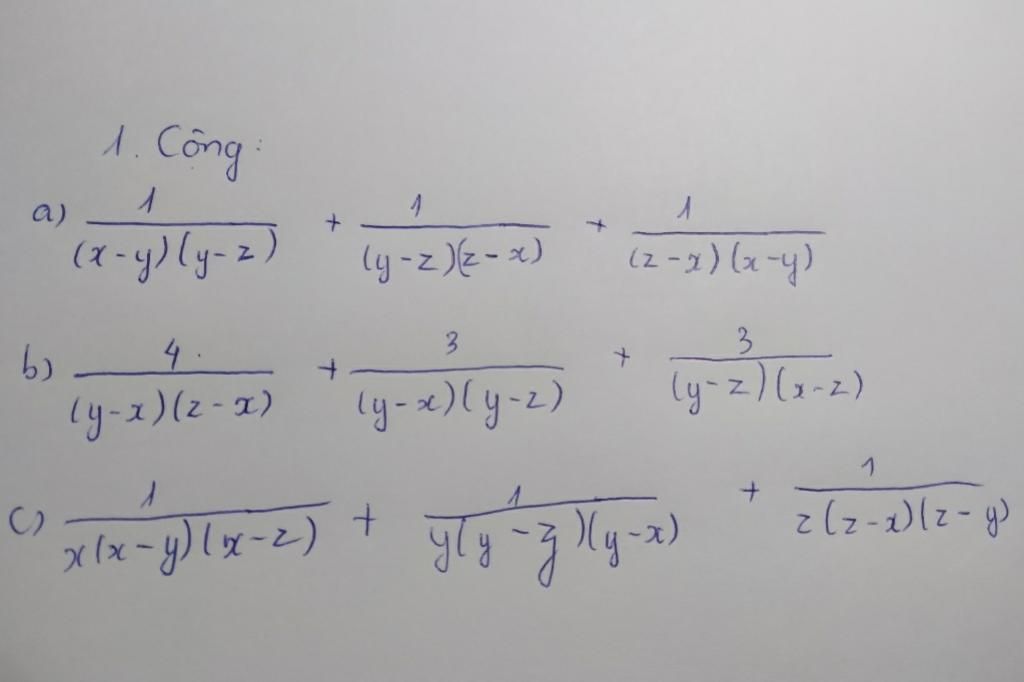 1. Cộng:
a) 1/((x-y)(y-z)) + 1/((y-z)(z-x)) + 1/((z-x)(x-y))
b) 4/((y-x)(z-x)) + 3/((y-x)(y-z)) + 3/((y-z)(x-z))
c) 1/(x(x-y)(x-z)) + 1/(y(y-z)(y-x)) + 1/(z(z-x)(z-y))